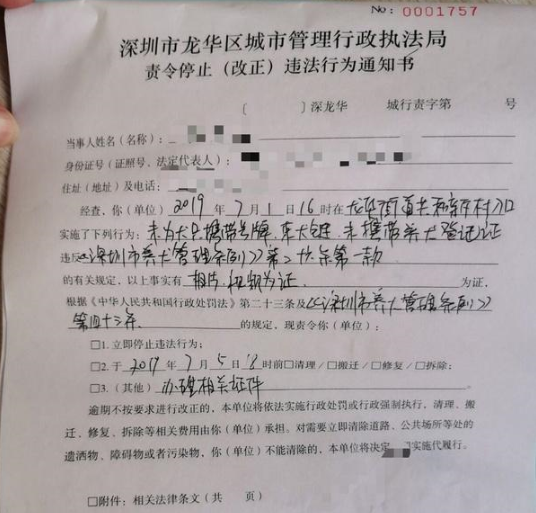 No: 0001757
深圳市龙华区城市管理行政执法局
责令停止（改正）违法行为通知书
〔 〕深龙华 城行责字第 号
当事人姓名（名称）：
身份证号（证照号、法定代表人）：
住址（地址）及电话：
经查，你（单位）2019年7月1日16时在龙华街道共和新村入口
实施了下列行为：未为犬只携带号牌、束犬链、未携带养犬登记证
违反《深圳市养犬管理条例》第二十条第一款
的有关规定，以上事实有 相片、视频为证 为证，
根据《中华人民共和国行政处罚法》第二十三条及《深圳市养犬管理条例》
第四十三条 的规定，现责令你（单位）：
□1. 立即停止违法行为；
□2. 于2019年7月5日 时前□清理/□搬迁/□修复/□拆除；
□3.（其他）办理相关证件
逾期不按要求进行改正的，本单位将依法实施行政处罚或行政强制执行，清理、搬
迁、修复、拆除等相关费用由你（单位）承担。对需要立即清除道路、公共场所等处的
遗洒物、障碍物或者污染物，你（单位）不能清除的，本单位将决定 实施代履行。
□附件：相关法律条文（共 页）